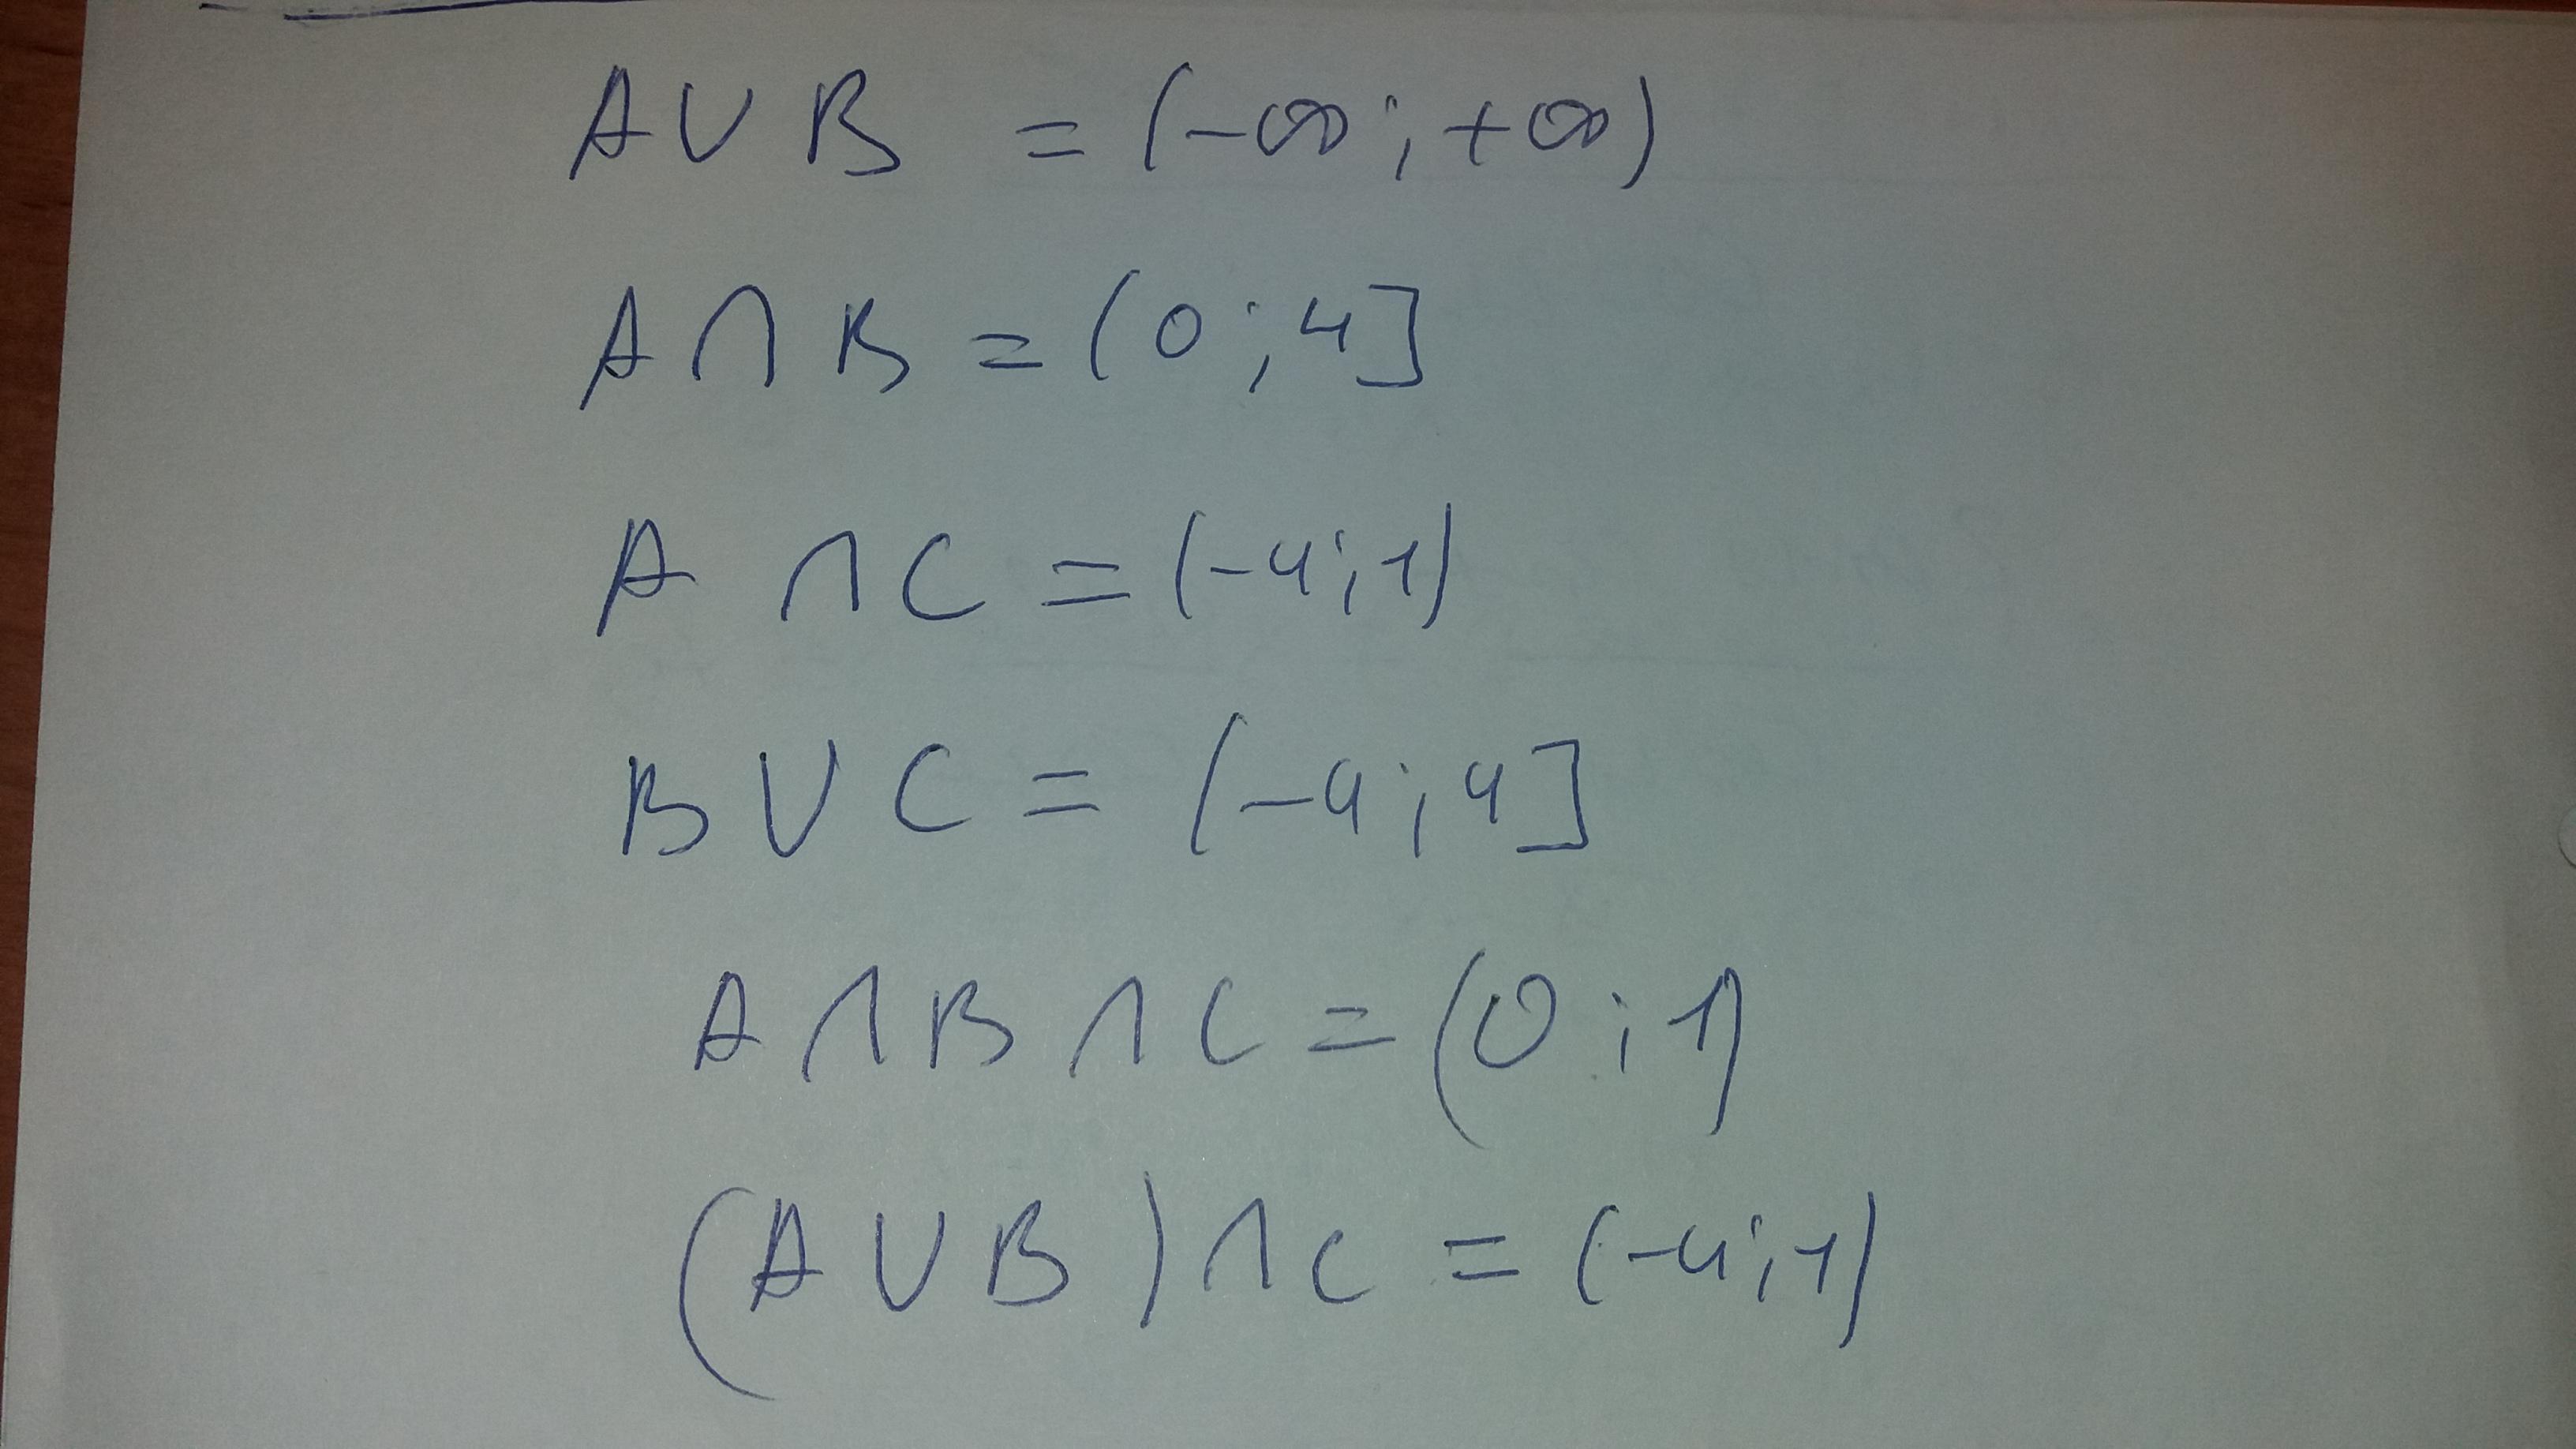 A ∪ B = (-∞; +∞)
A ∩ B = (0; 4]
A ∩ C = (-4; 1)
B ∪ C = (-4; 4]
A ∩ B ∩ C = (0; 1)
(A ∪ B) ∩ C = (-4; 1)